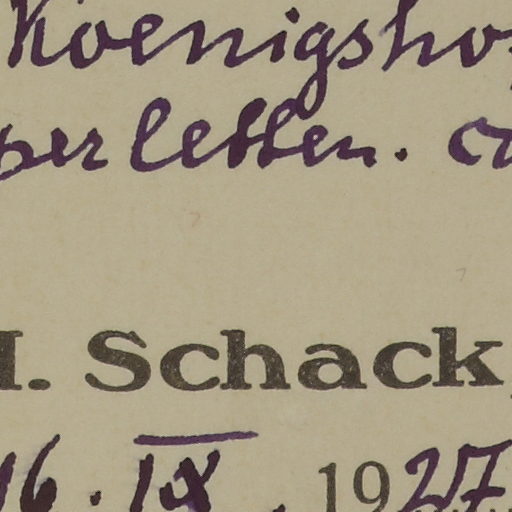 Koenigsho
per letten. co
I. Schack,
16. IX. 1927